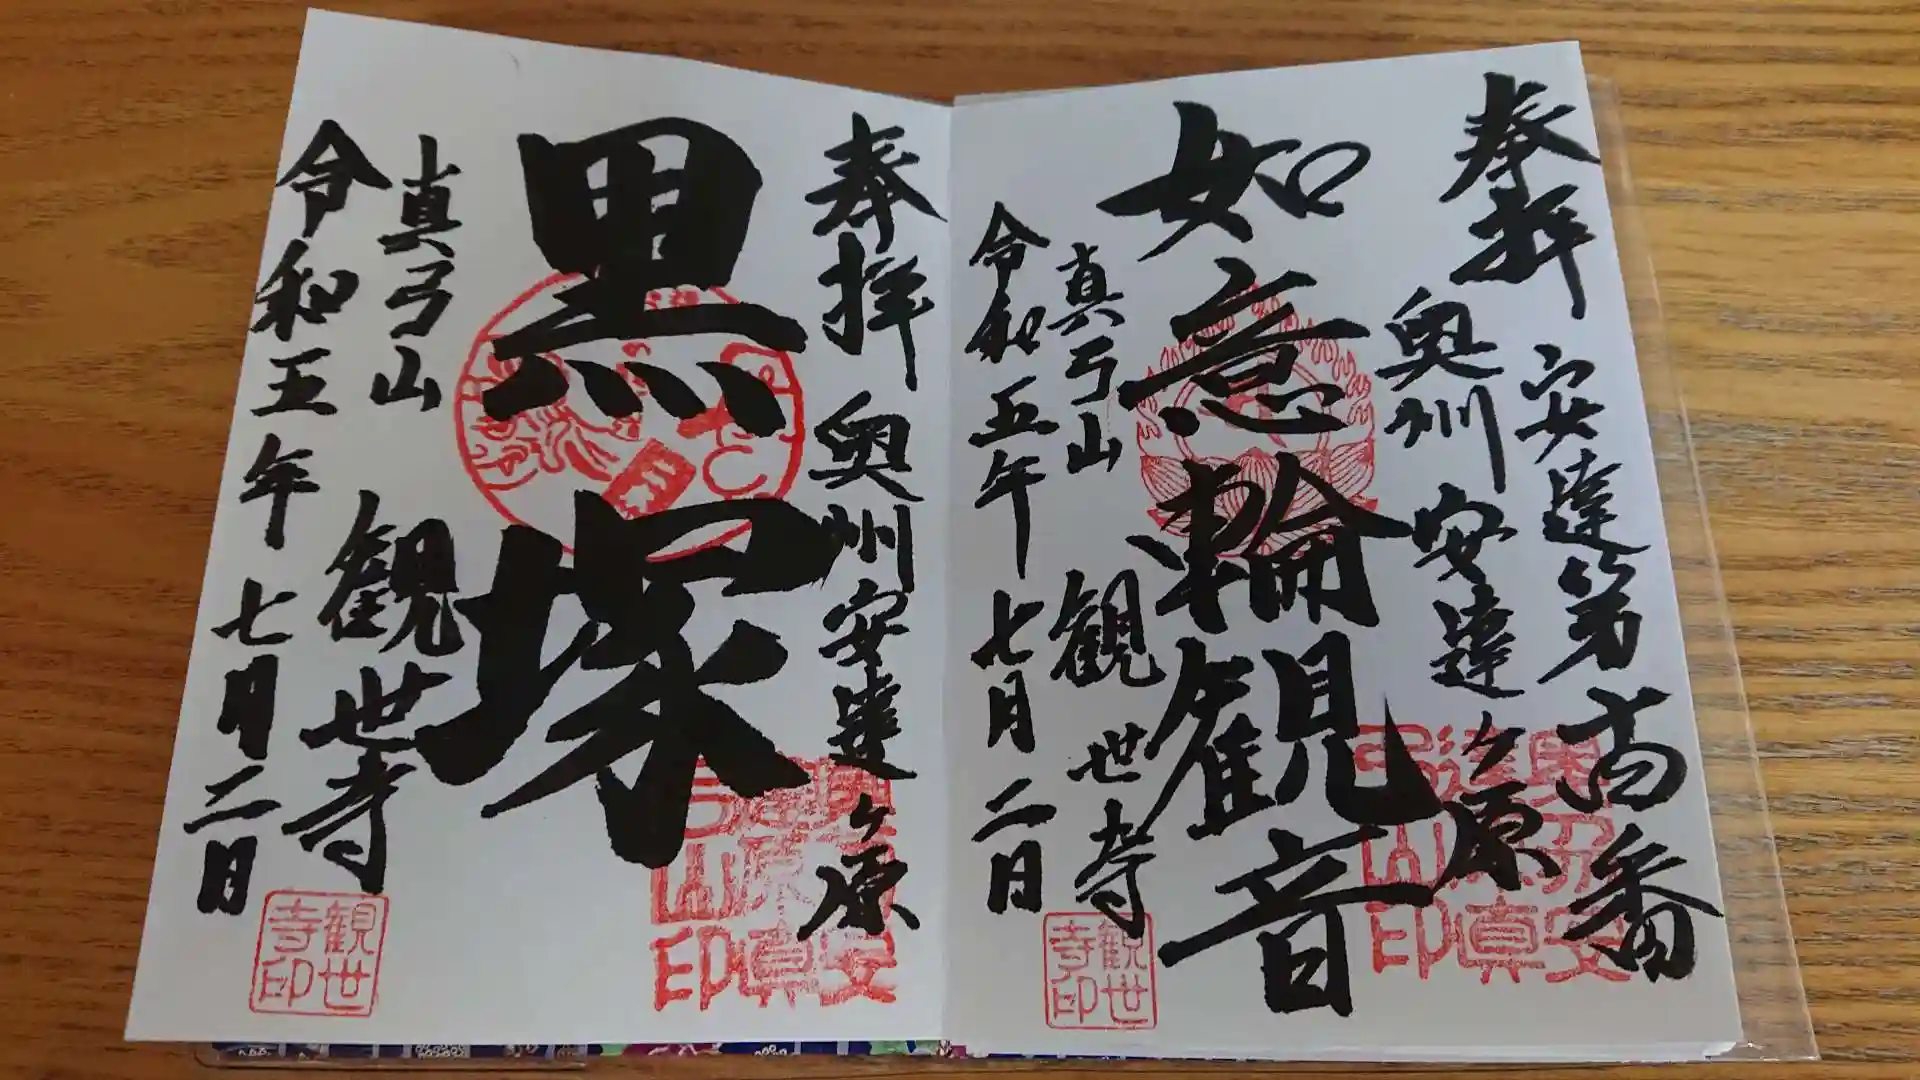 奉拝
安達第
番
奥州安達ヶ原
奥州安
達原真
弓山印
如意輪観音
真弓山 観世寺
観世
寺印
令和五年七月二日
奉拝 奥州安達ヶ原
奥州安
達原真
弓山印
黒塚
真弓山 観世寺
令和五年七月二日
観世
寺印